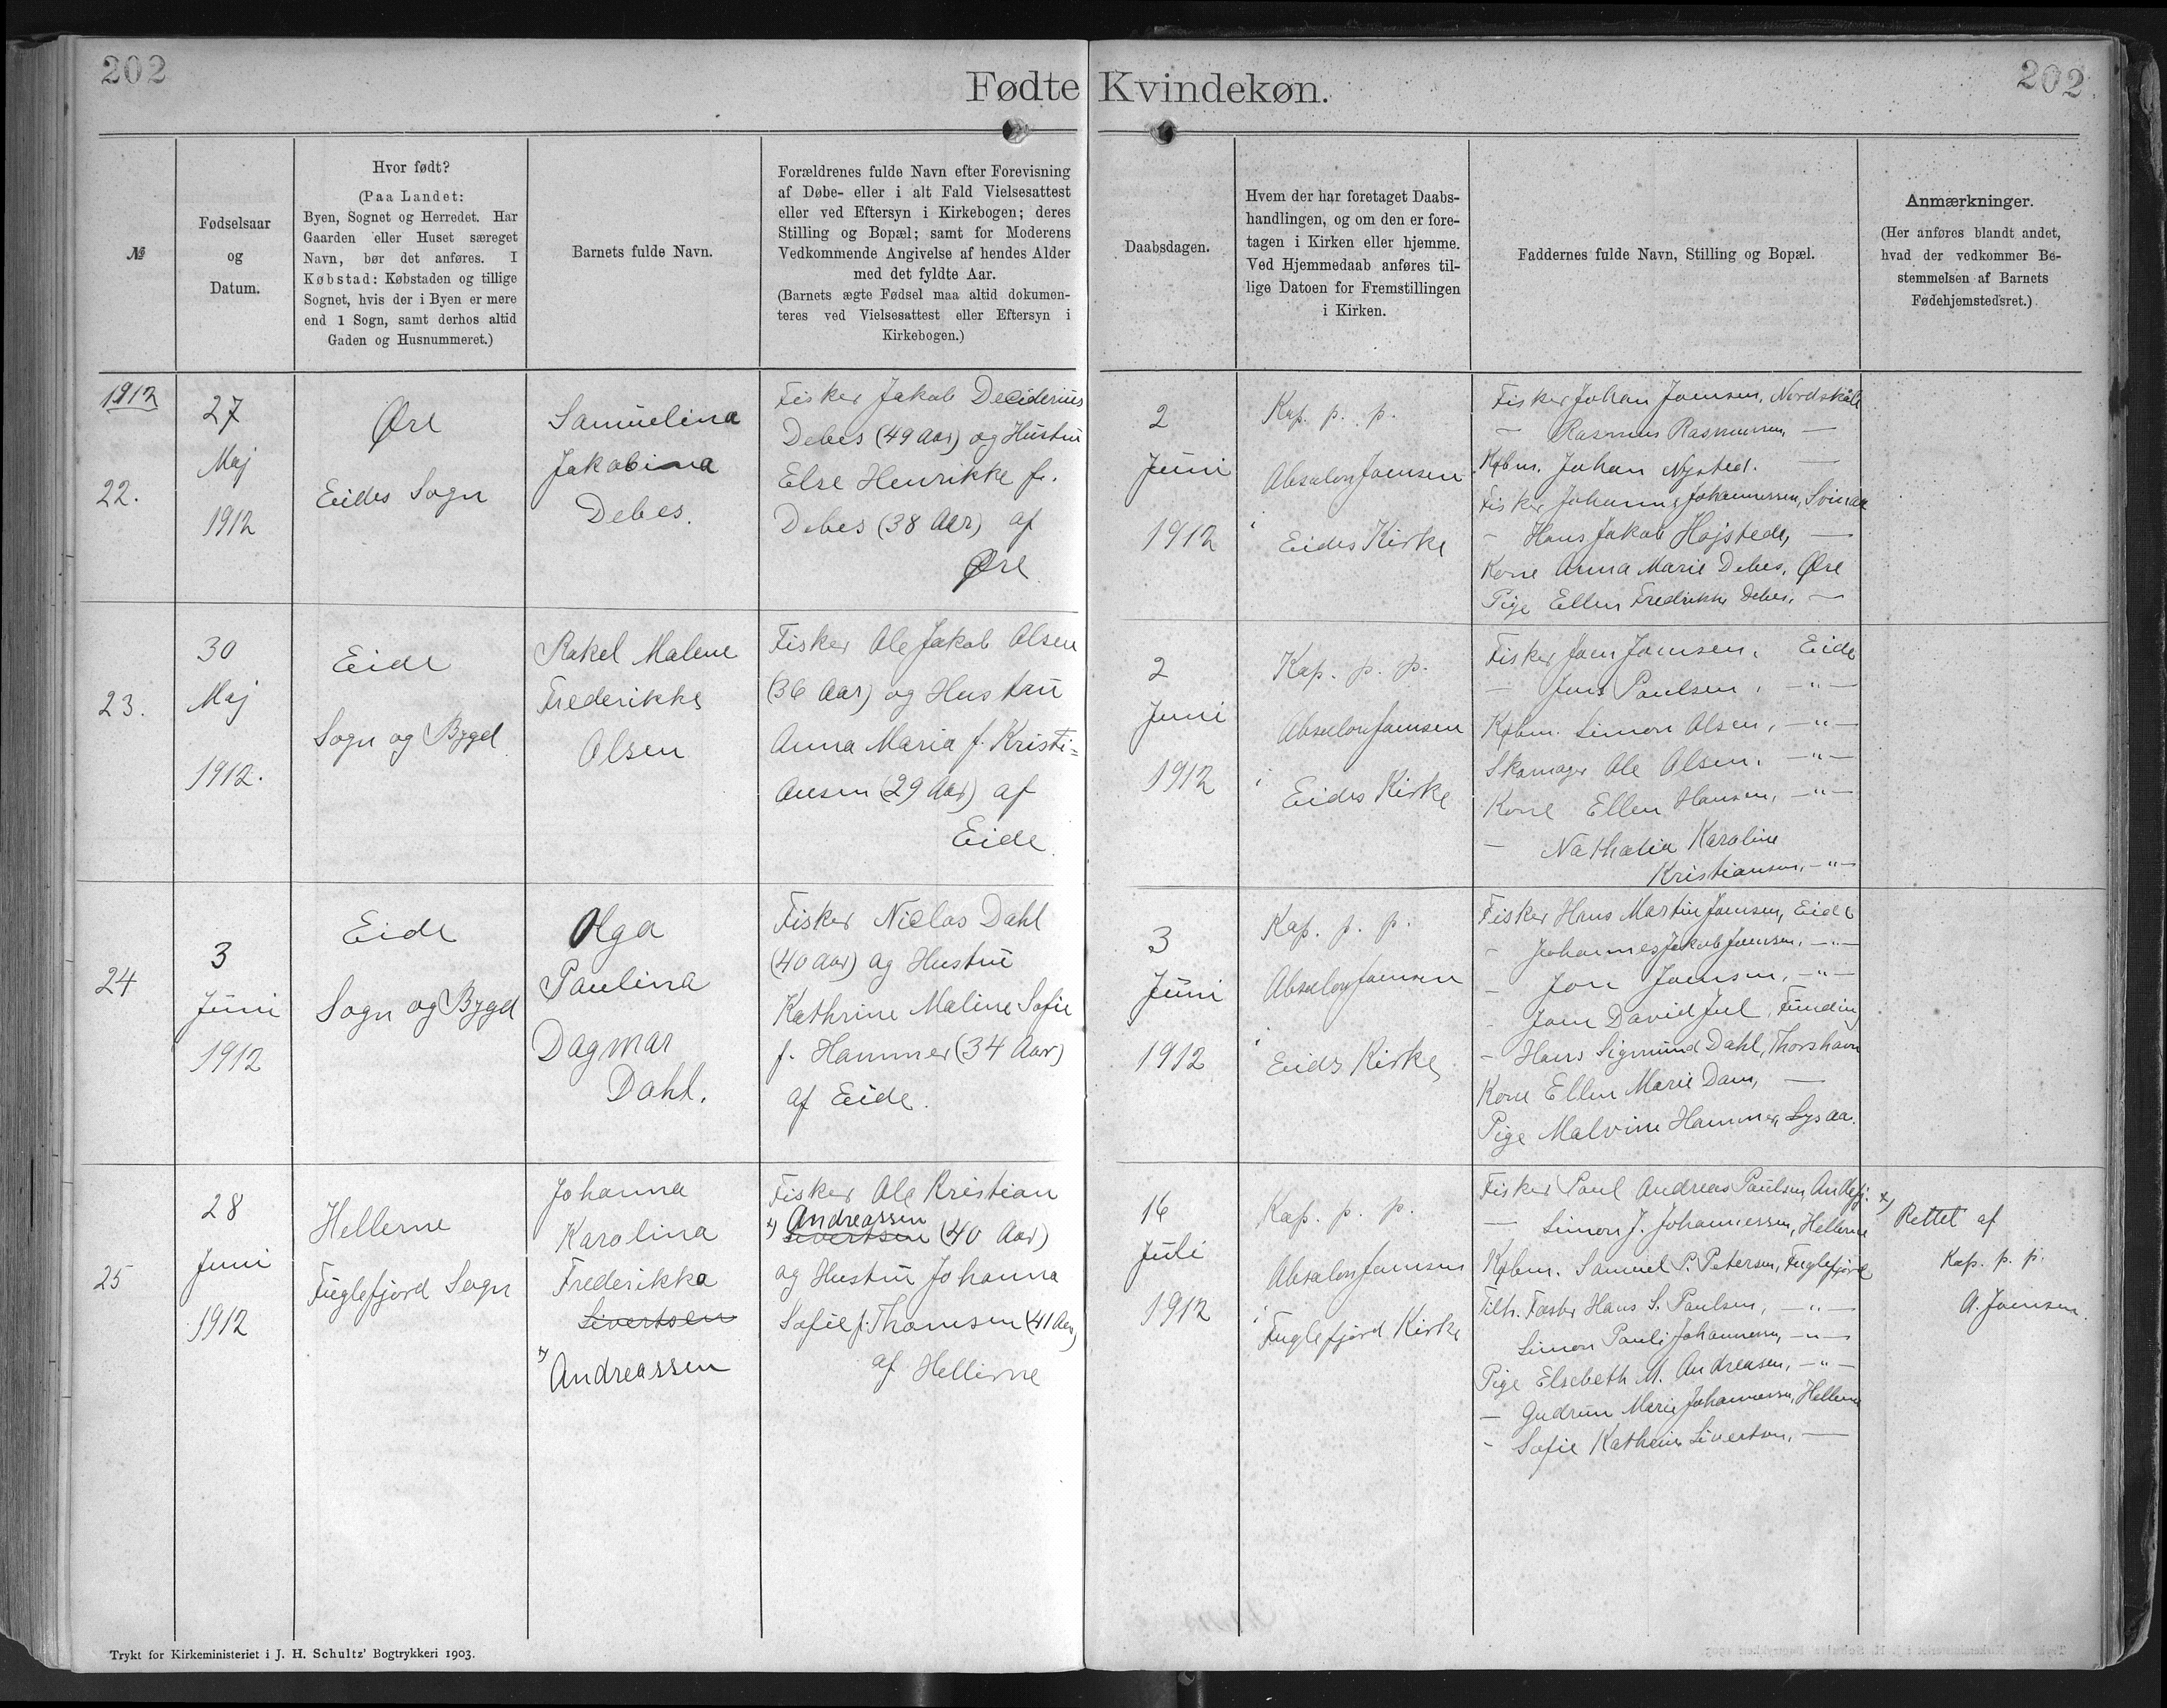 202
202
Fødte Kvindekøn.
№
Fødselsaar
og
Datum.
Hvor født?
(Paa Landet:
Byen, Sognet og Herredet. Har
Gaarden eller Huset særeget
Navn, bør det anføres. I
Købstad: Købstaden og tillige
Sognet, hvis der i Byen er mere
end 1 Sogn, samt derhos altid
Gaden og Husnummeret.)
Barnets fulde Navn.
Forældrenes fulde Navn efter Forevisning
af Døbe- eller i alt Fald Vielsesattest
eller ved Eftersyn i Kirkebogen; deres
Stilling og Bopæl; samt for Moderens
Vedkommende Angivelse af hendes Alder
med det fyldte Aar.
(Barnets ægte Fødsel maa altid dokumen-
teres ved Vielsesattest eller Eftersyn i
Kirkebogen.)
Daabsdagen.
Hvem der har foretaget Daabs-
handlingen, og om den er fore-
tagen i Kirken eller hjemme.
Ved Hjemmedaab anføres til-
lige Datoen for Fremstillingen
i Kirken.
Faddernes fulde Navn, Stilling og Bopæl.
Anmærkninger.
(Her anføres blandt andet,
hvad der vedkommer Be-
stemmelsen af Barnets
Fødehjemstedsret.)
1912
22.
27
Maj
1912
Øre
Eides Sogn
Samuelina
Jakobina
Debes.
Fisker Jakob Deciderius
Debes (49 Aar) og Hustru
Else Henrikke f.
Debes (38 Aar) af
Øre
2
Juni
1912
Kap. p. p.
Absalon Joensen
i Eides Kirke
Fisker Johan Joensen, Nordskåle
— Rasmus Rasmussen, —
Købm. Johan Nysted. —
Fisker Johannes Johannessen, Svinaa
- Hans Jakob Højsted, —
Kone Anna Marie Debes, Øre
Pige Ellen Fredrikke Debes, —
23.
30
Maj
1912.
Eide
Sogn og Bygd
Rakel Malene
Frederikke
Olsen
Fisker Ole Jakob Olsen
(36 Aar) og Hustru
Anna Maria f. Kristi=
ansen (29 Aar) af
Eide.
2
Juni
1912
Kap. p. p.
Absalon Joensen
i Eides Kirke
Fisker Joen Joensen, Eide
— Jens Paulsen, —"—
Købm. Simon Olsen, —"—
Skomager Ole Olsen, —"—
Kone Ellen Hansen, —"—
— Nathalia Karoline
Kristiansen, —"—
24
3
Juni
1912
Eide
Sogn og Bygd
Olga
Paulina
Dagmar
Dahl.
Fisker Niclas Dahl
(40 Aar) og Hustru
Kathrine Maline Sofie
f. Hammer (34 Aar)
af Eide.
3
Juni
1912
Kap. p. p.
Absalon Joensen
i Eides Kirke
Fisker Hans Martin Joensen, Eide
- Johannes Jakob Joensen, —"—
- Jon Joensen, —"—
- Joen David Juel, Funding
- Hans Sigmund Dahl, Thorshavn
Kone Ellen Marie Dam, —
Pige Malvine Hammer, Lysaa.
25
28
Juni
1912
Hellerne
Fuglefjord Sogn
Johanna
Karolina
Frederikka
Sivertsen
x) Andreassen
Fisker Ole Kristian
x) Andreassen
Sivertsen (40 Aar)
og Hustru Johanna
Sofie f. Thomsen (41 Aar)
af Hellerne
16
Juli
1912
Kap. p. p.
Absalon Joensen
i Fuglefjord Kirke
Fisker Poul Andreas Paulsen, Andefj.
— Simon J. Johannessen, Hellerne
Købm. Samuel P. Petersen, Fuglefjord
Tilh. Fæster Hans S. Paulsen, —"—
Simon Pauli Johannessen, —"—
Pige Elsebeth M. Andreasen, —"—
— Gudrun Marie Johannessen, Hellerne
- Sofie Kathrine Sivertsen, —
x) Rettet af
Kap. p. p.
A. Joensen.
Trykt for Kirkeministeriet i J. H. Schultz' Bogtrykkeri 1903.